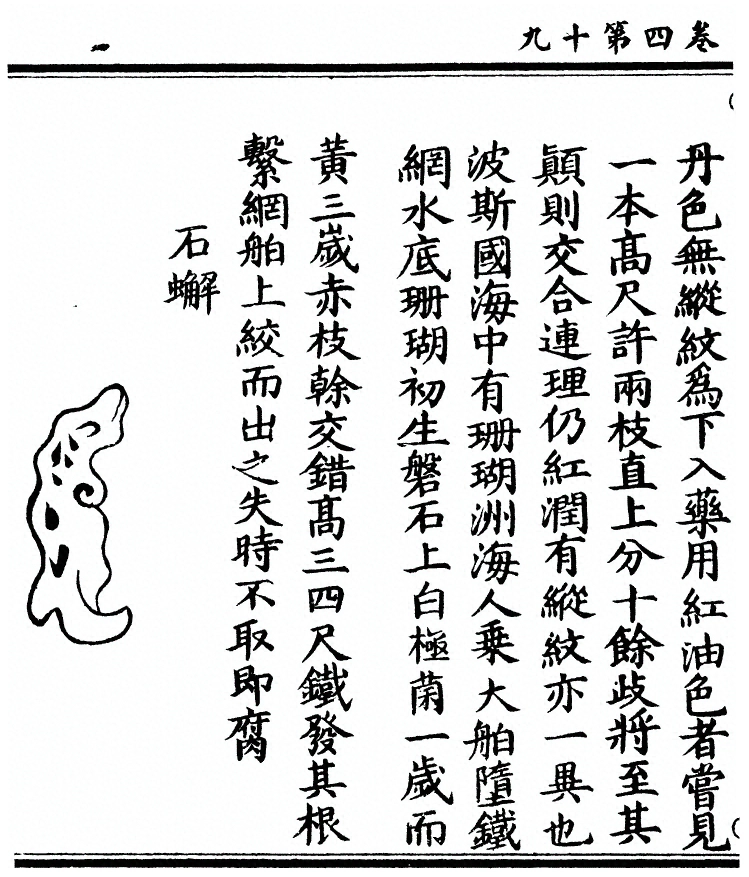 卷四第十九
丹色無縱紋爲下入藥用紅油色者嘗見
一本高尺許兩枝直上分十餘歧將至其
顚則交合連理仍紅潤有縱紋亦一異也
波斯國海中有珊瑚洲海人乗大舶墮鐵
網水底珊瑚初生磐石上白極菌一歲而
黃三歲赤枝榦交錯高三四尺鐵發其根
繫網舶上絞而出之失時不取即腐
石蠏